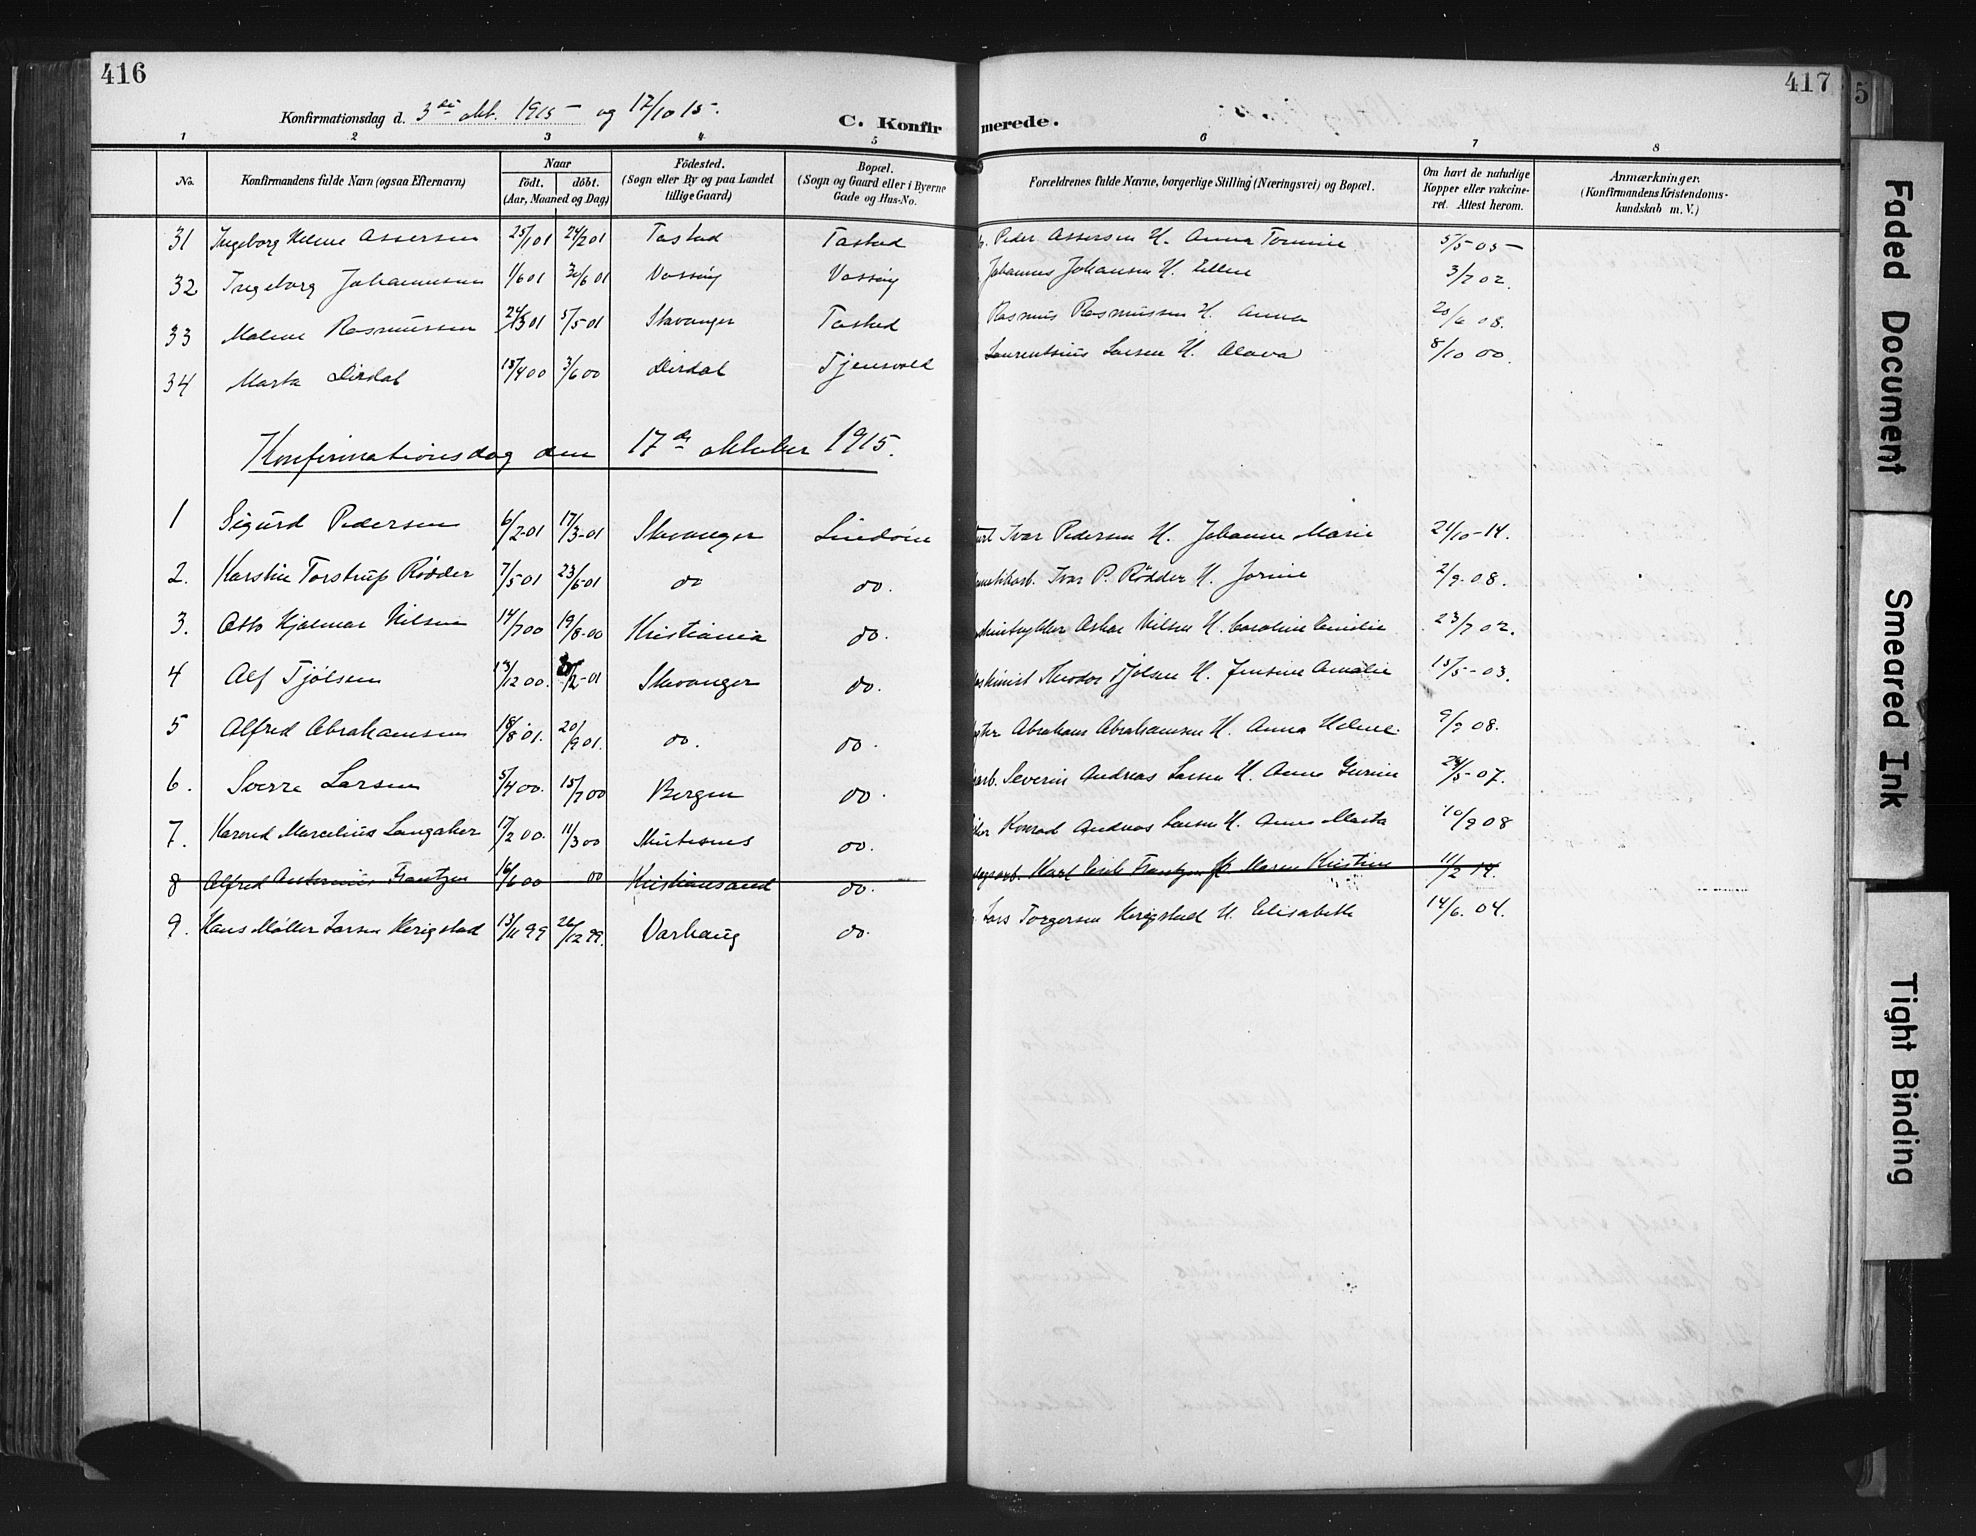 416
417
5
Konfirmationsdag d. 3die okt. 1915 og 17/10 15.
C. Konfirmerede.
1 2 3 4 5 6 7 8
No. Konfirmandens fulde Navn (ogsaa Efternavn) Naar født. døbt. (Aar, Maaned og Dag) Fødested. (Sogn eller By og paa Landet tillige Gaard) Bopæl. (Sogn og Gaard eller i Byerne Gade og Hus-No. Forældrenes fulde Navne, borgerlige Stilling (Næringsvei) og Bopæl. Om havt de naturlige Kopper eller vakcineret. Attest herom. Anmærkninger. (Konfirmandens Kristendomskundskab m. V.)
31 Ingeborg Helene Assersen 25/1 01 24/2 01 Tastad Tastad Peder Assersen H. Anna Tomine 5/5-05-
32 Ingeborg Johannesen 1/6 01 30/6 01 Vassøy Vassøy Johannes Johansen H. Ellene 3/7 02.
33 Malene Rasmussen 5/5-01 Stavanger Tastad Rasmus Rasmussen H. Anna 20/6 08.
34 Marta Dirdal 13/4 00 3/6 00 Dirdal Tjensvold Laurentsius Larsen H. 8/10 00.
Konfirmationsdag den 17de oktober 1915.
1 Sigurd Pedersen 6/2-01 17/3-01 Stavanger Lindøen Ivar Pedersen H. Johanne Marie 21/10-14.
2. Karsten Torstrup Rødder 7/5 01 23/6 01 do do. Ivar P. Rødder H. Jorine 2/9-08.
3. Otto Hjalmar Nilsen 14/7 00 19/8-00 Kristiania do. Oskar Nilsen H. Caroline Emilie 23/7 02.
4 Alf Tjølsen 13/12 00. /2-01 Stavanger do. Theodor Tjølsen H. Jensine Amalie 13/5-03.
5 Alfred Abrahamsen 18/8 01. 20/9 01. do. do. Abraham Abrahamsen H. Anna Helene. 9/9 08.
6. Sverre Larsen 5/4 00. 15/7 00 Bergen do. Severin Andreas Larsen H. Anne Gurine 24/5-07.
7. Konrad Marcelius Langaker 17/2 00. 11/3 00 Skutesnes do. Konrad Andreas Larsen H. Anne Marta 10/9 08
8 Alfred Antonius Frantzen 16/6 00 00 Kristiansand do. Karl Emil Frantzen H. Maren Kristine 11/2 14
9. Hans Møller Larsen Herigstad 13/11 99 26/12 99. Varhaug do. Lars Torgersen Herigstad H. Elisabeth 14/6. 04.
Faded Document
Smeared Ink
Tight Binding